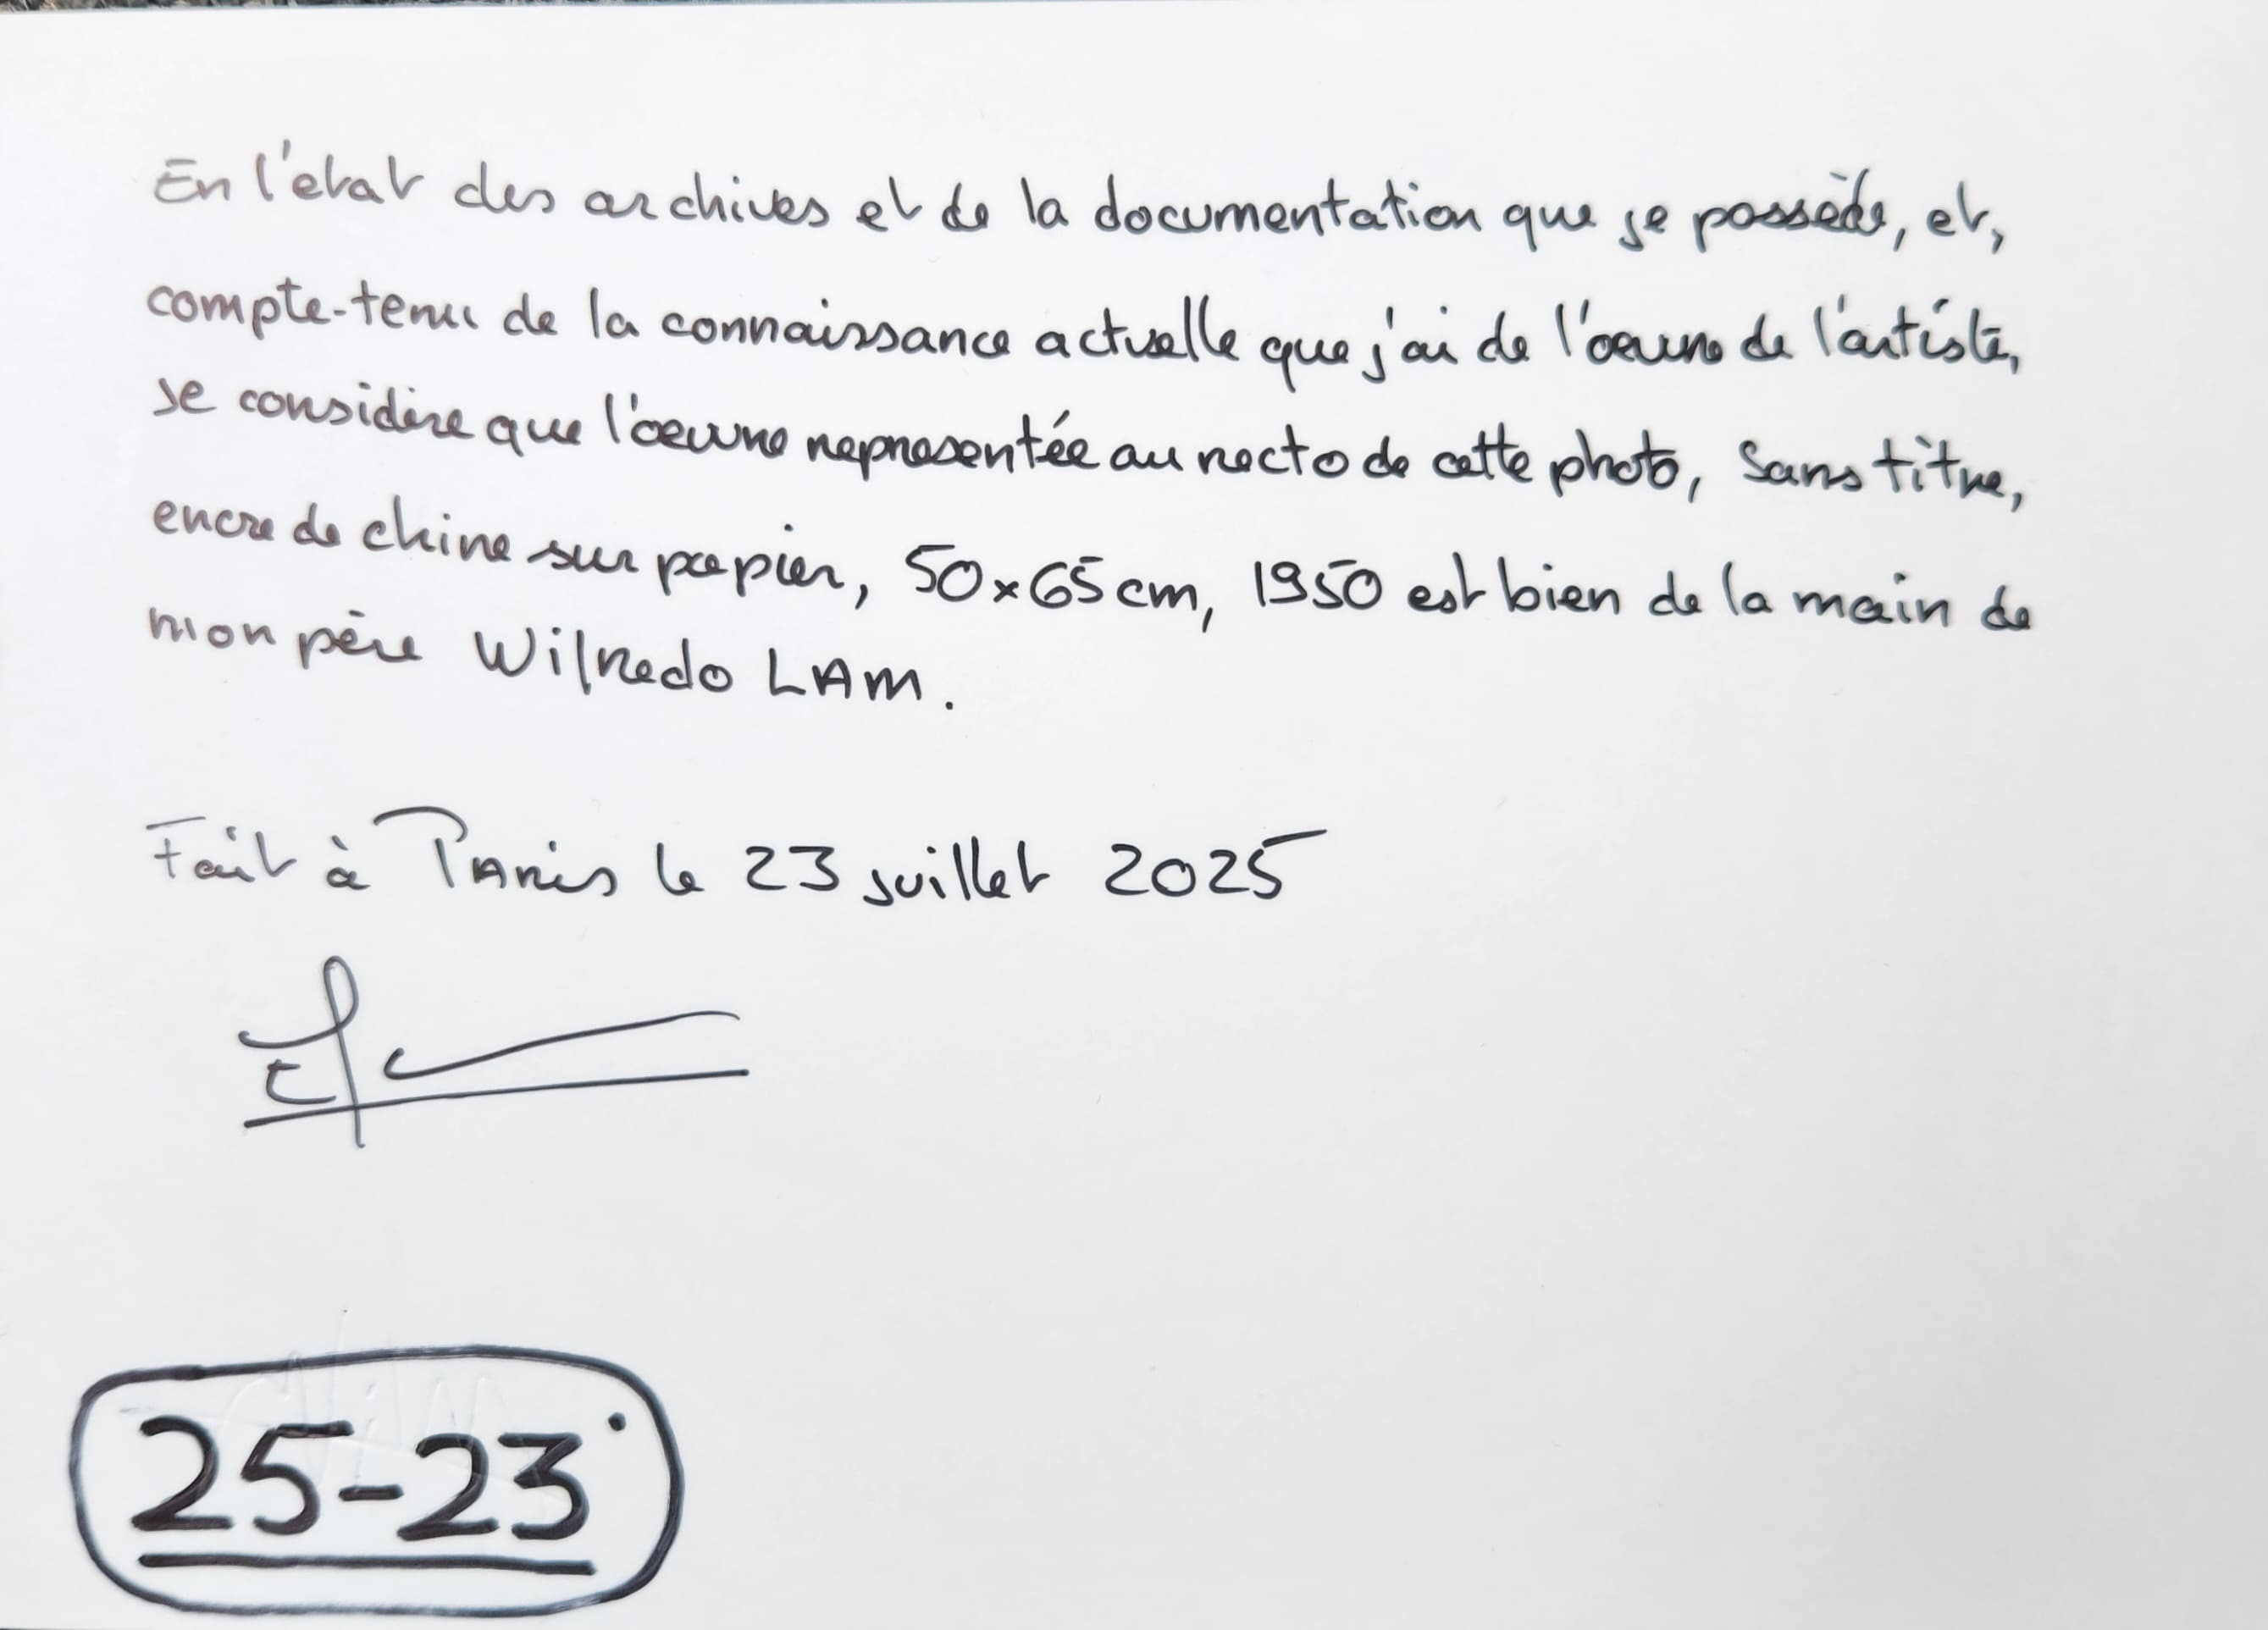 En l'etat des archives et de la documentation que je possède, et,
compte-tenu de la connaissance actuelle que j'ai de l'œuvre de l'artiste,
je considère que l'œuvre representée au recto de cette photo, Sans titre,
encre de chine sur papier, 50x65 cm, 1950 est bien de la main de
mon père Wilfredo LAM.
Fait à Paris le 23 juillet 2025
25-23